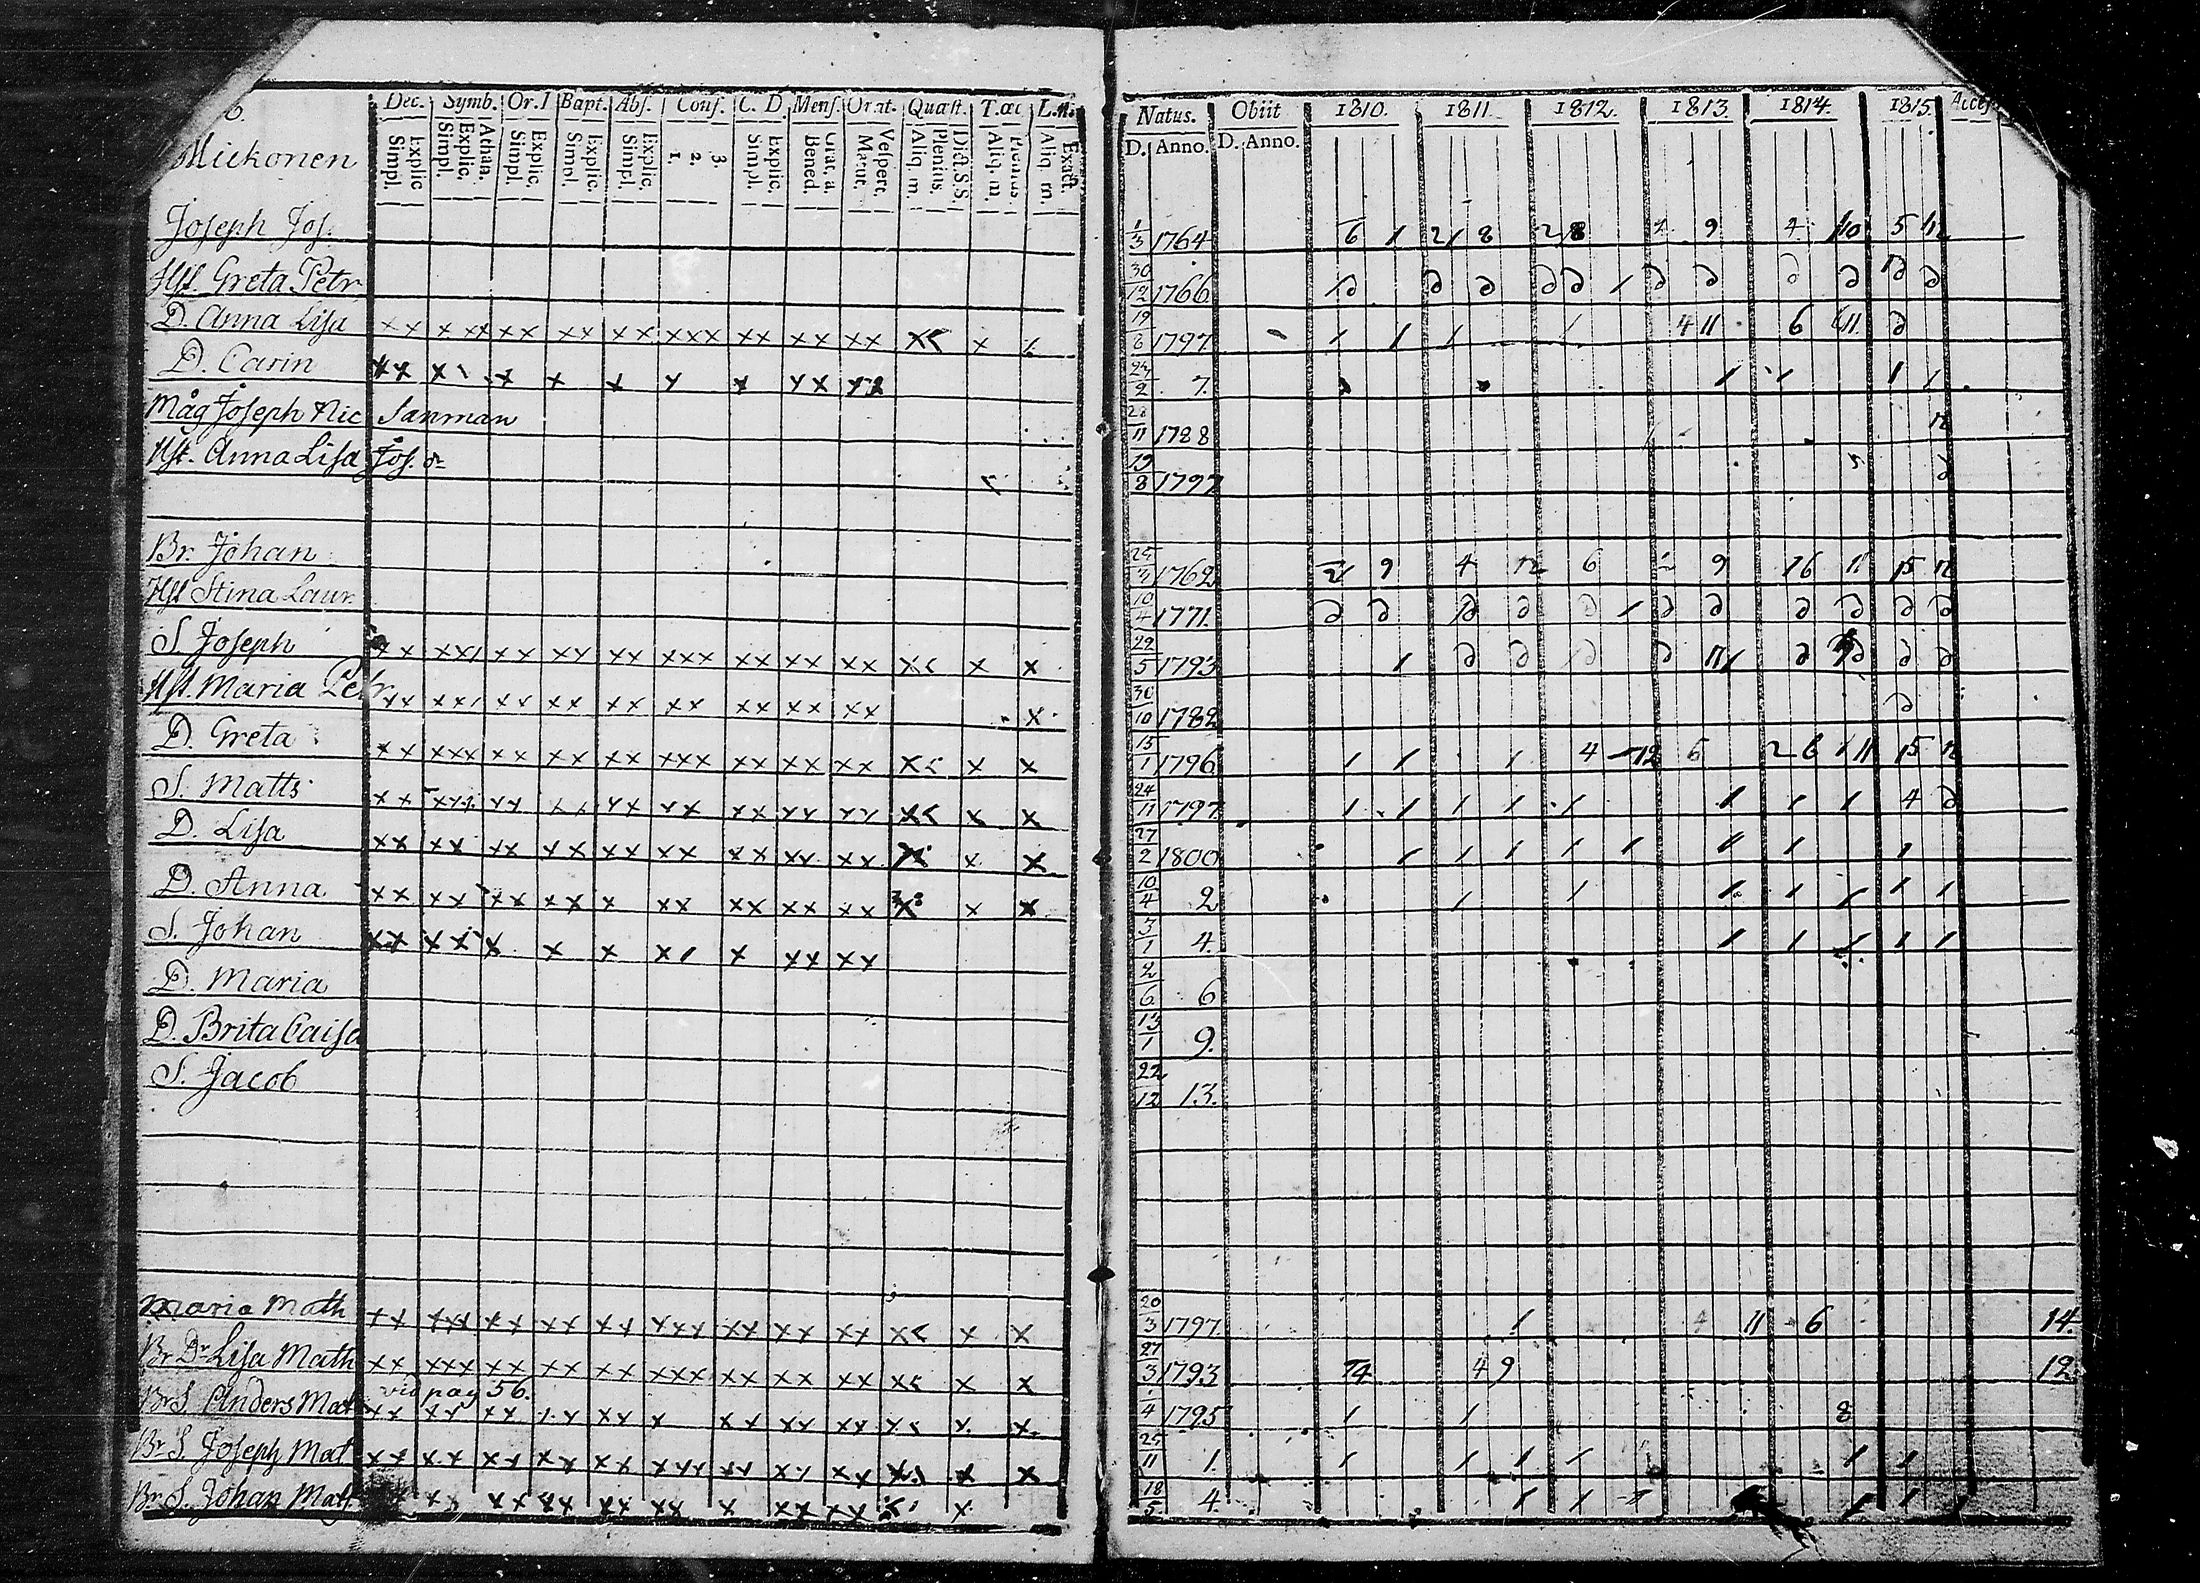 Dec. Symb. Or. D Bapt. Abs. Conf. C. D Mens. Orat. Quæst. T. œc L. n.
Explic Simpl. Athan. Explic. Simpl. Explic. Simpl. Explic. Simpl. Explic. Simpl. 3. 2. 1. Explic. Simpl. Grat. a. Bened. Vespert. Matut. Dict. S. S. Plenius. Aliq. m. Plenius. Aliq. m. Exact. Aliq. m.
Natus. Obiit 1810. 1811. 1812. 1813. 1814. 1815.
D. Anno. D. Anno.
Miekonen
Joseph Jos. 1/3 1764 6 1 21 8 28 9 4 110 5 11
Hst. Greta Petr 30/12 1766
D. Anna Lisa 19/8 1797 1 1 1 1 4 11 6 11
D. Carin 7
Måg Joseph Nic Sanman 28/11 1788 12
Hst. Anna Lisa Jos. dr 19/8 1797
Br. Johan 25/3 1762 21 9 4 12 6 9 16 11 15 12
Hst Stina Laur. 10/4 1771.
S. Joseph 29/5 1793
Hst. Maria Petr 30/10 1782
D. Greta 15/1 1796 1 1 1 4 12 6 2 6 1 11 15 12
S. Matts 24/11 1797 1 1 1 1 1 1 1 1 4
D. Lisa 27/2 1800 1 1 1 1 1 1 1 1
D. Anna 10/4 2 1 1 1 1 1 1 1
S. Johan 3/1 4. 1 1 1 1 1
D. Maria 2/6 6
D. Brita Caisa 13/1 9.
S. Jacob 22/12 13.
Maria Math 20/3 1797 1 4 11 6 14.
Br Dr Lisa Math 27/3 1793 14 4 9 12.
vid pag 56.
Br S. Anders Mat 1/4 1795 1 1 8
Br S. Joseph Mat 25/11 1. 1 1 1 1 1 1
Br S. Johan Mat. 18/5 4 1 1 1 1 1